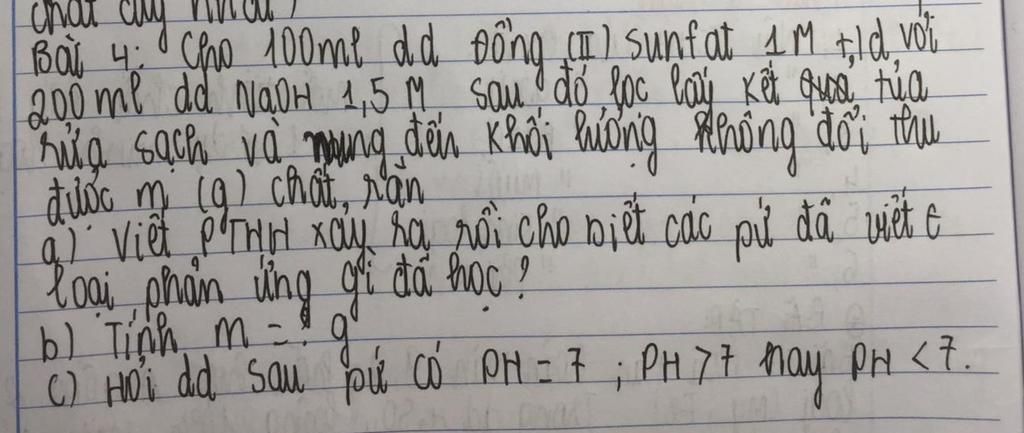 chất duy nhất)
Bài 4: Cho 100ml dd Đồng (II) sunfat 1M t/d với
200ml dd NaOH 1,5M sau đó lọc lấy kết quả tủa
rửa sạch và nung đến khối lượng không đổi thu
được m (g) chất rắn
a) Viết PTHH xảy ra rồi cho biết các pứ đã viết ∈
loại phản ứng gì đã học?
b) Tính m = ? g
c) Hỏi dd sau pứ có PH = 7 ; PH > 7 hay PH < 7.